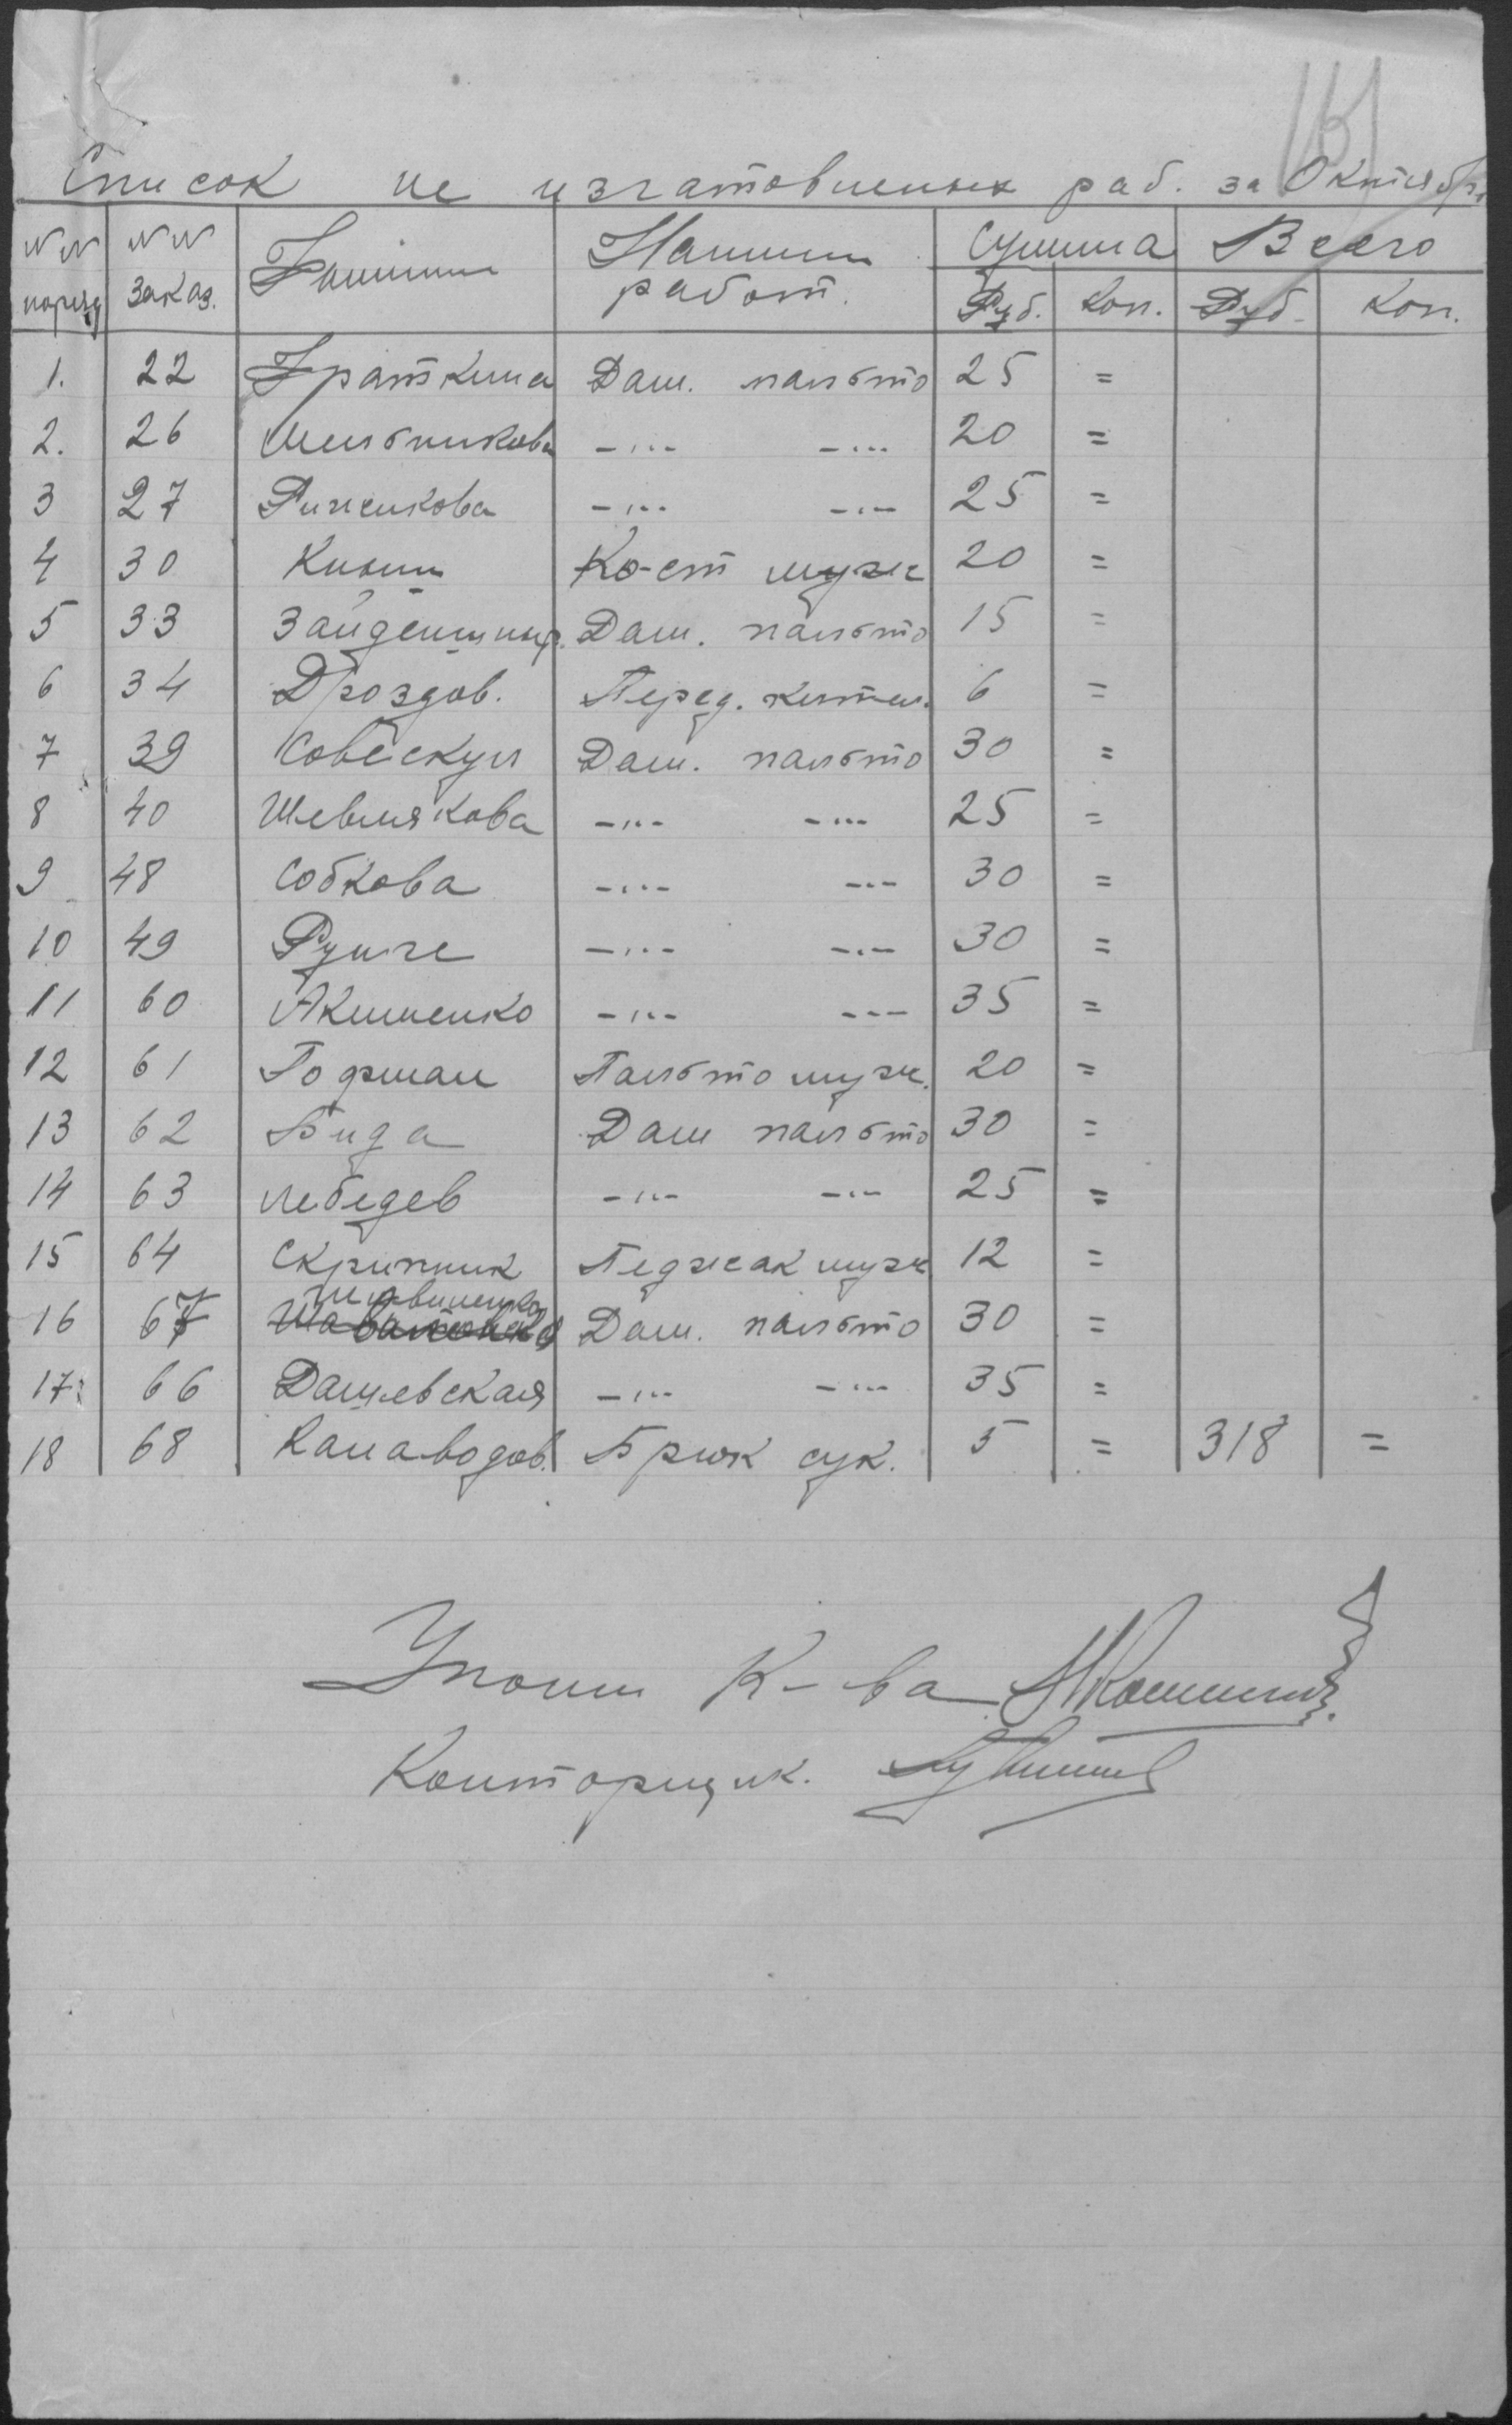 161
Список не изгатовленых раб. за Октябрь
№№ поряд №№ заказ. Фамилии Наимен работ. Сумма Всего
Руб. Коп. Руб. Коп.
1. 22 Граткина Дам. пальто 25 =
2. 26 Мельникова -"- -"- 20 =
3 27 Риженкова -"- -"- 25 =
4 30 Ко-ст муж 20 =
5 33 Зайденшнир. Дам. пальто 15 =
6 34 Дроздов. Перед. кител. 6 =
7 39 Совескул Дам. пальто 30 =
8 40 Шевлякова -"- -"- 25 =
9 48 Собкова -"- -"- 30 =
10 49 Рунге -"- -"- 30 =
11 60 Акименко -"- -"- 35 =
12 61 Гофман Пальто муж. 20 =
13 62 Бида Дам пальто 30 =
14 63 Лебедев -"- -"- 25 =
15 64 Скрипник Педжак муж 12 =
16 67 Дам. пальто 30 =
17 66 Дашевская -"- -"- 35 =
18 68 Канаводов. Брюк сук. 5 = 318 =
Упоми К-ва
Конторщик.